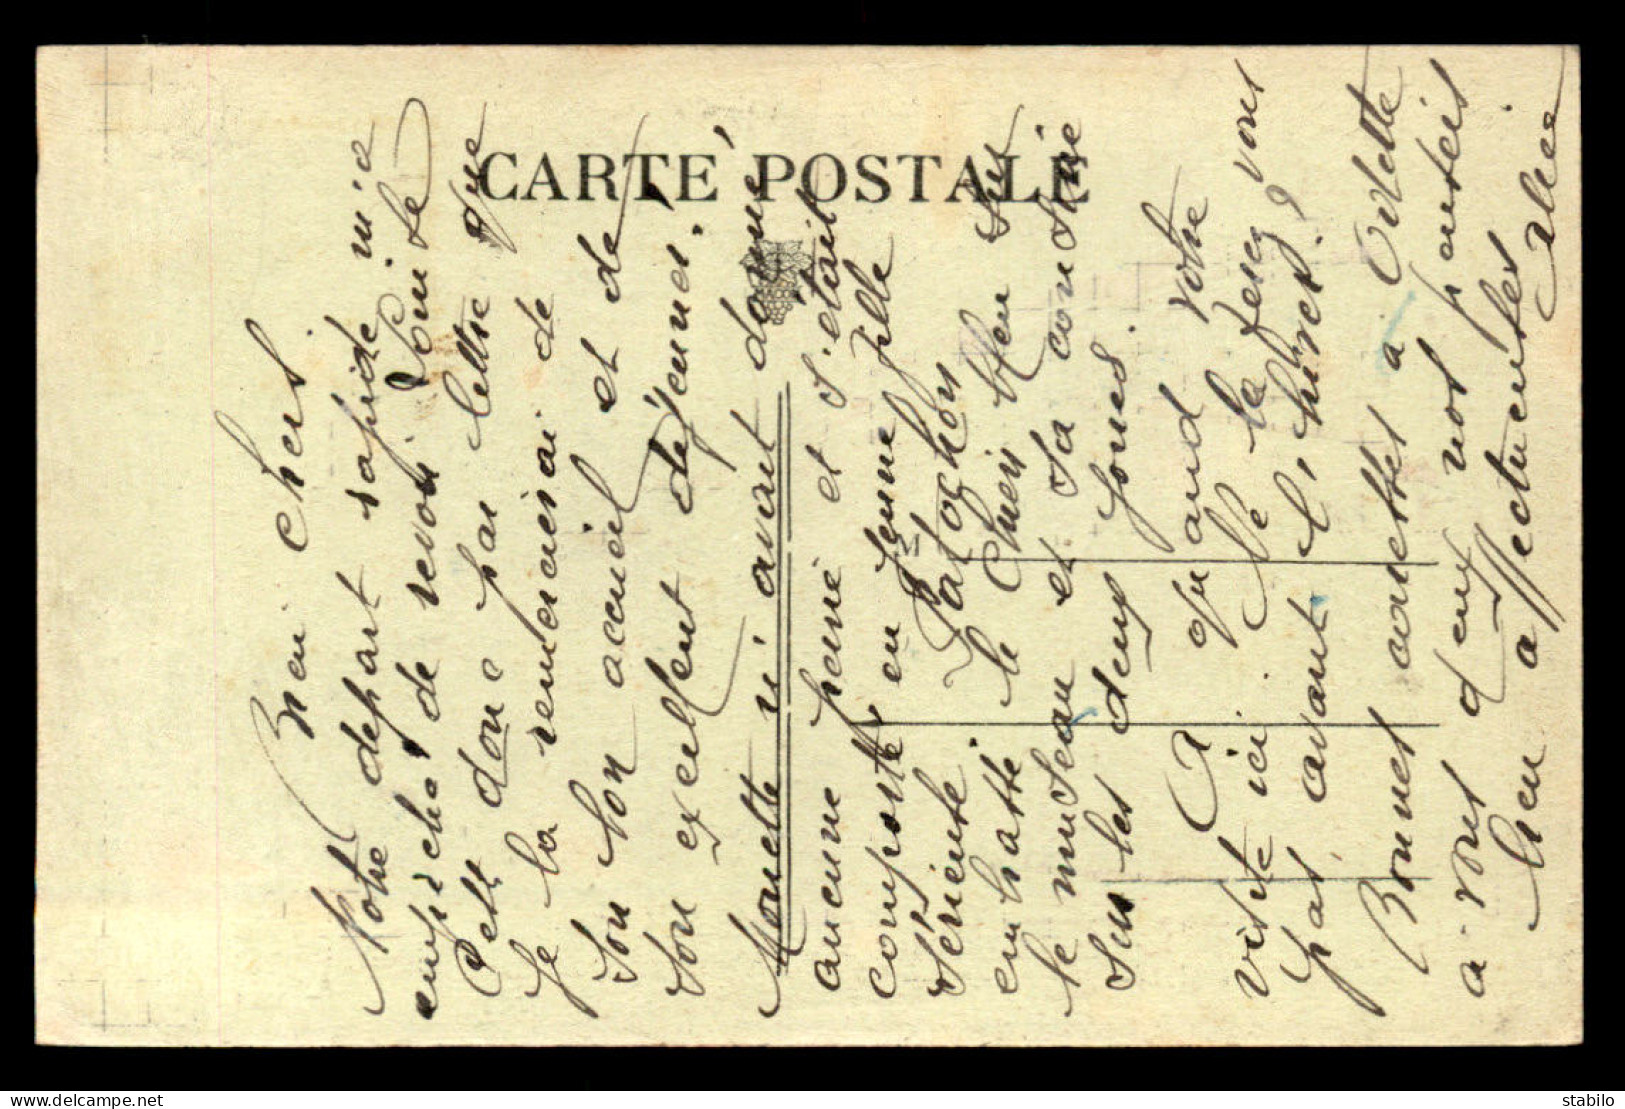 CARTE POSTALE
Bien chers
Notre départ rapide m'a
empêché de revoir Louise
C'est donc par lettre que
je la remercierai de
son bon accueil et de
son excellent déjeuné.
Monette n'avait donné
aucune peine et s'était
comportée en jeune fille
sérieuse Patochon
embrasse le Chien bleu sur
le museau et sa cousine
sur les deux joues.
A quand votre
visite ici. Ne la ferez vous
pas avant l'hiver?
Bonnes amitiés à Odette
à vous deux nos pensées
bien affectueuses
Alice
delcampe.net
stabilo